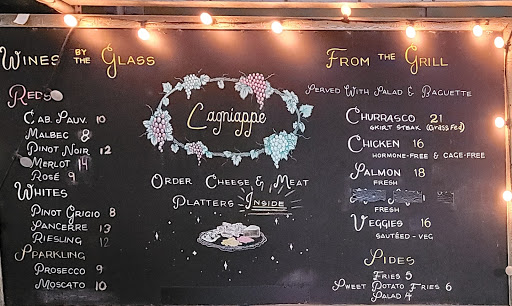 Wines by the Glass
Reds
Cab. Sauv. 10
Malbec 8
Pinot Noir 12
Merlot 14
Rosé 9
Whites
Pinot Grigio 8
Sancerre 13
Riesling 12
Sparkling
Prosecco 9
Moscato 10
Lagniappe
Order Cheese & Meat
Platters - Inside
From the Grill
Served With Salad & Baguette
Churrasco 21
Skirt Steak (Grass Fed)
Chicken 16
Hormone-Free & Cage-Free
Salmon 18
Fresh
Fresh
Veggies 16
Sautéed - Veg
Sides
Fries 5
Sweet Potato Fries 6
Salad 4